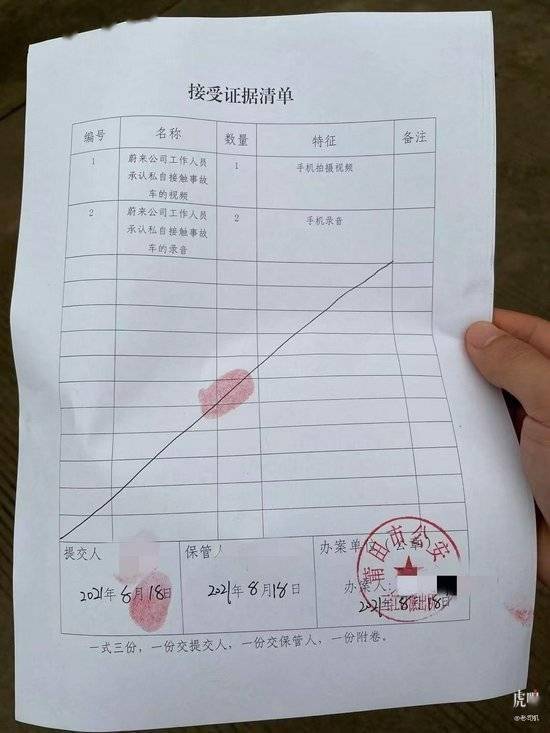 接受证据清单
编号 名称 数量 特征 备注
1 蔚来公司工作人员 1 手机拍摄视频
承认私自接触事故
车的视频
2 蔚来公司工作人员 2 手机录音
承认私自接触事故
车的录音
提交人 保管人 办案单位 公章
办案人：
2021年8月18日 2021年8月18日 2021年8月18日
莆田市公安
一式三份，一份交提交人，一份交保管人，一份附卷。
虎嗅
@老司机